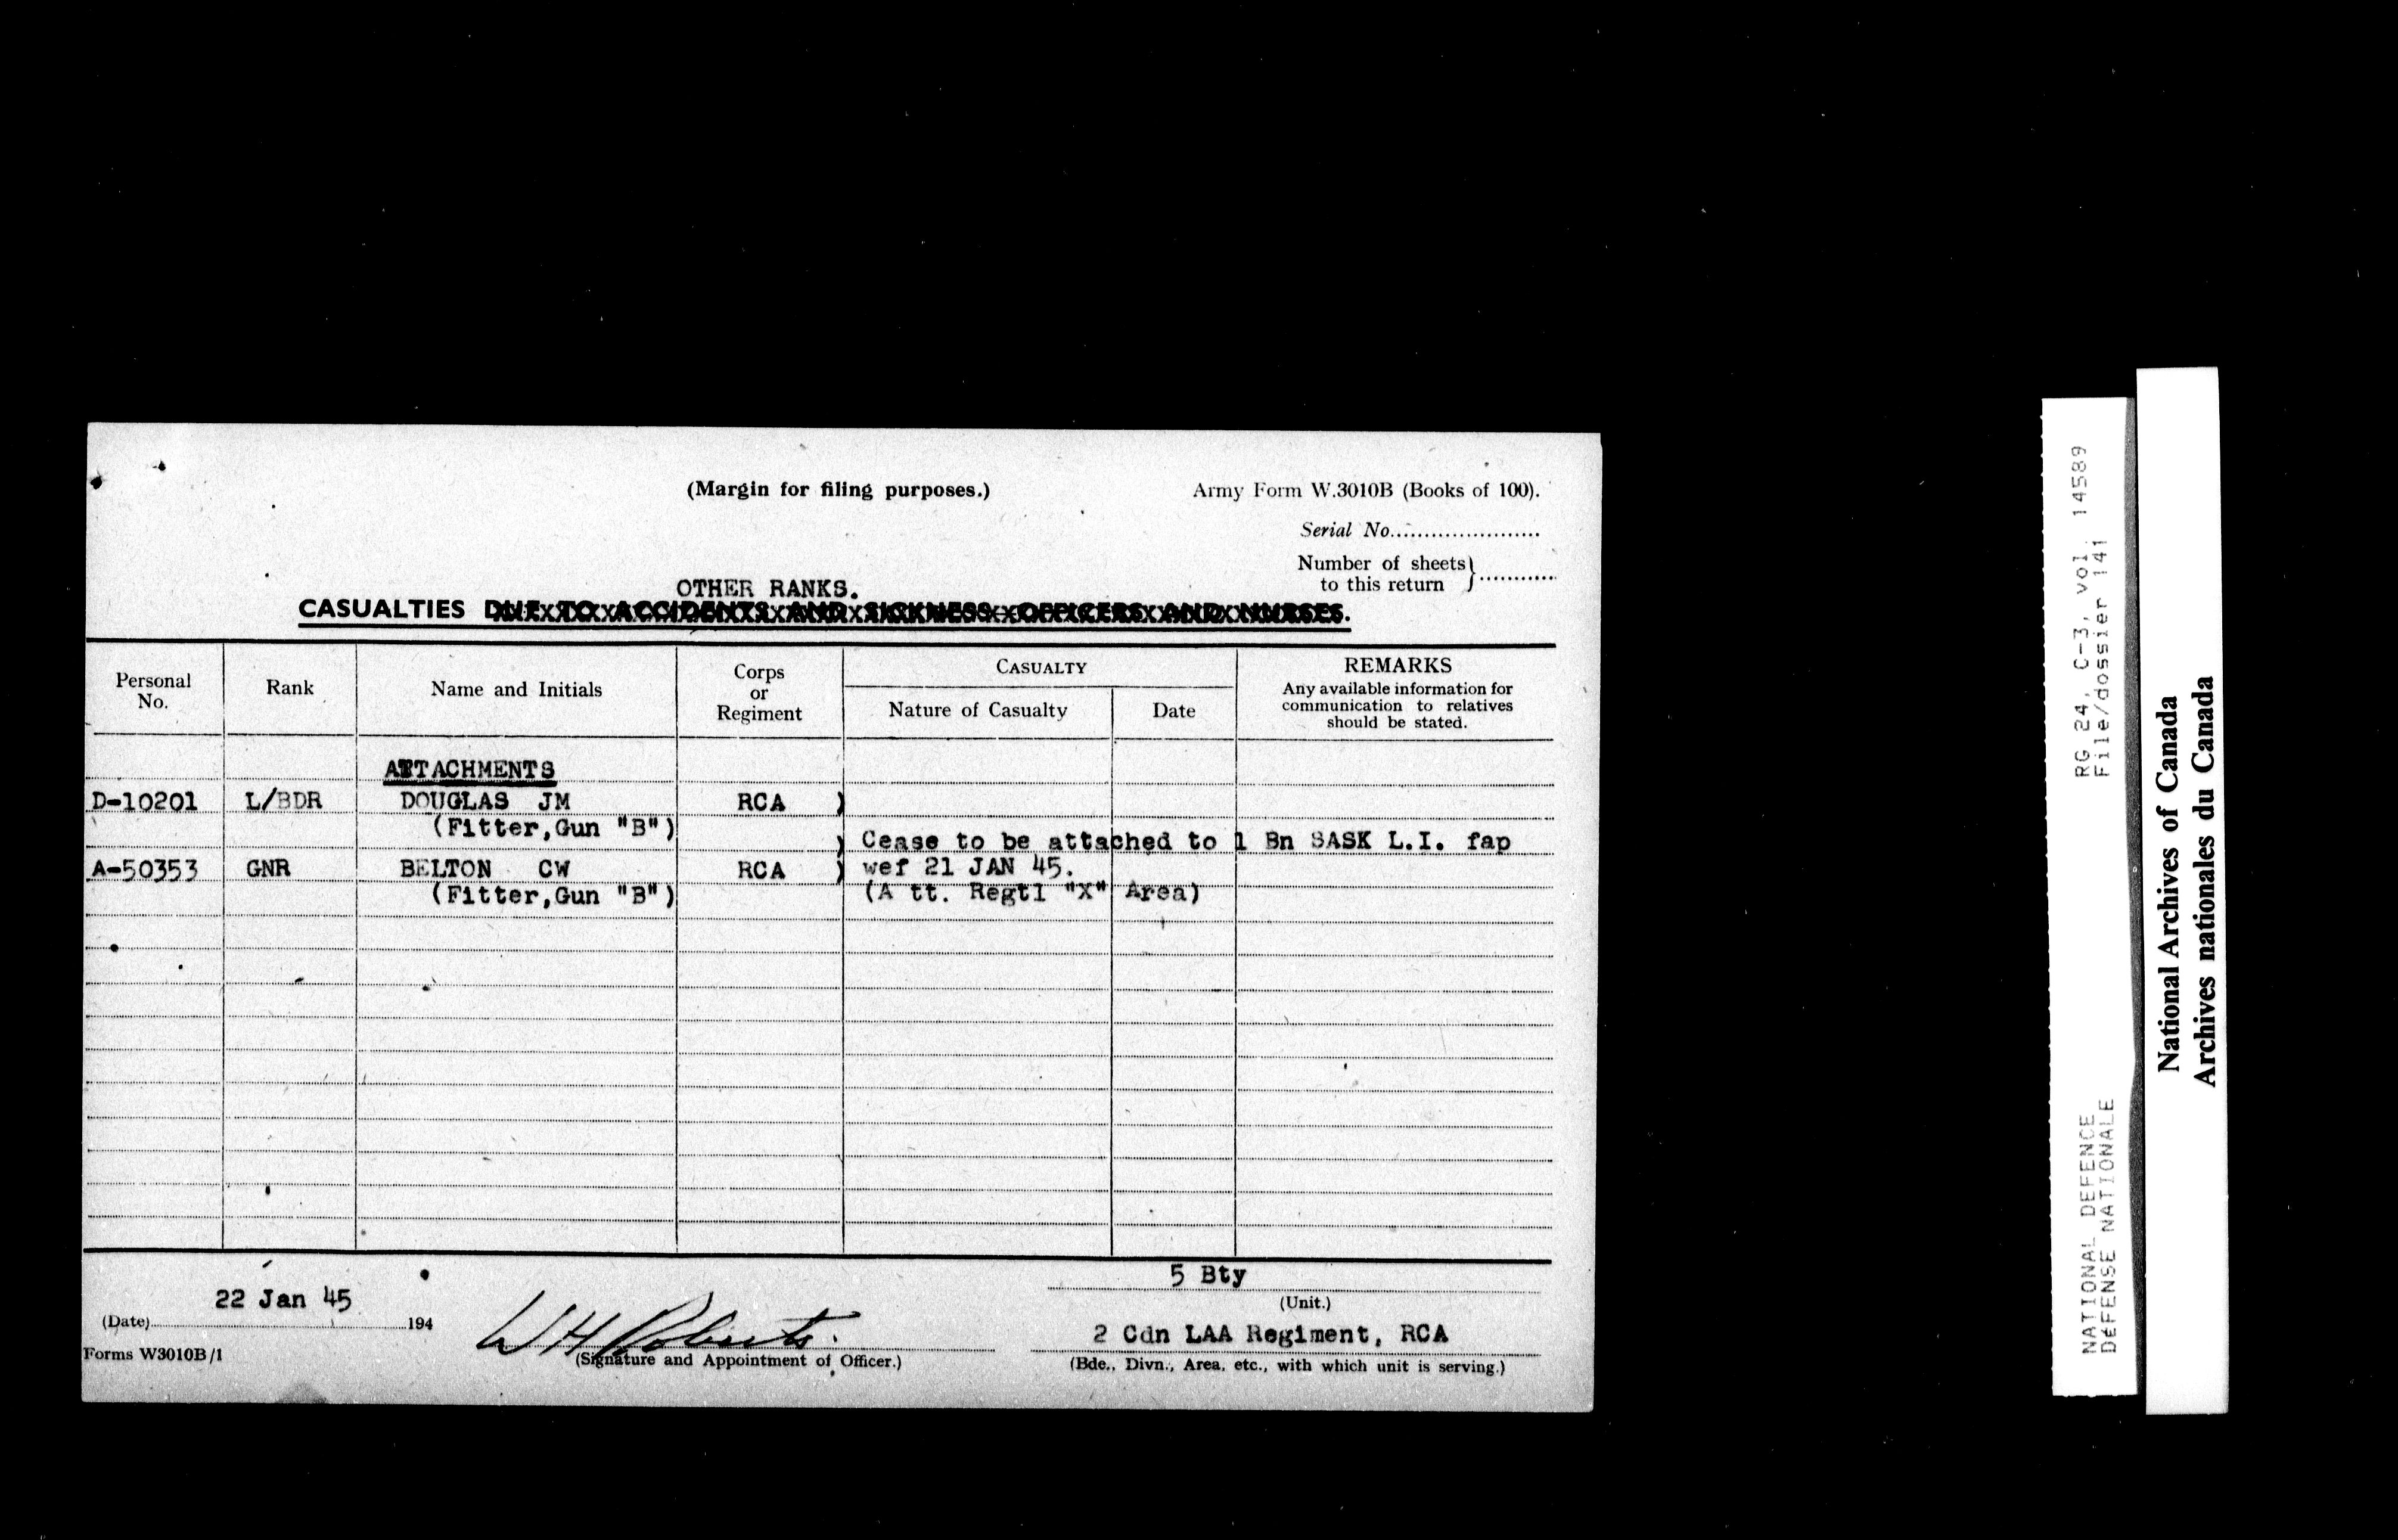 (Margin for filing purposes.)
Army Form W.3010B (Books of 100).
Serial No.......................
Number of sheets
to this return } ............
OTHER RANKS.
CASUALTIES DUE TO ACCIDENTS AND SICKNESS—OFFICERS AND NURSES.
Personal No. Rank Name and Initials Corps or Regiment CASUALTY Nature of Casualty Date REMARKS
Any available information for communication to relatives should be stated.
ATTACHMENTS
D-10201 L/BDR DOUGLAS JM RCA )
(Fitter,Gun "B")
) Cease to be attached to 1 Bn SASK L.I. fap
A-50353 GNR BELTON CW RCA ) wef 21 JAN 45.
(Fitter,Gun "B") (A tt. Regtl "X" Area)
5 Bty
(Unit.)
22 Jan 45
(Date) 194
WH Roberts.
(Signature and Appointment of Officer.)
2 Cdn LAA Regiment, RCA
(Bde., Divn., Area, etc., with which unit is serving.)
Forms W3010B/1
NATIONAL DEFENCE RG 24, C-3, vol. 14589
DÉFENSE NATIONALE File/dossier 141
National Archives of Canada
Archives nationales du Canada